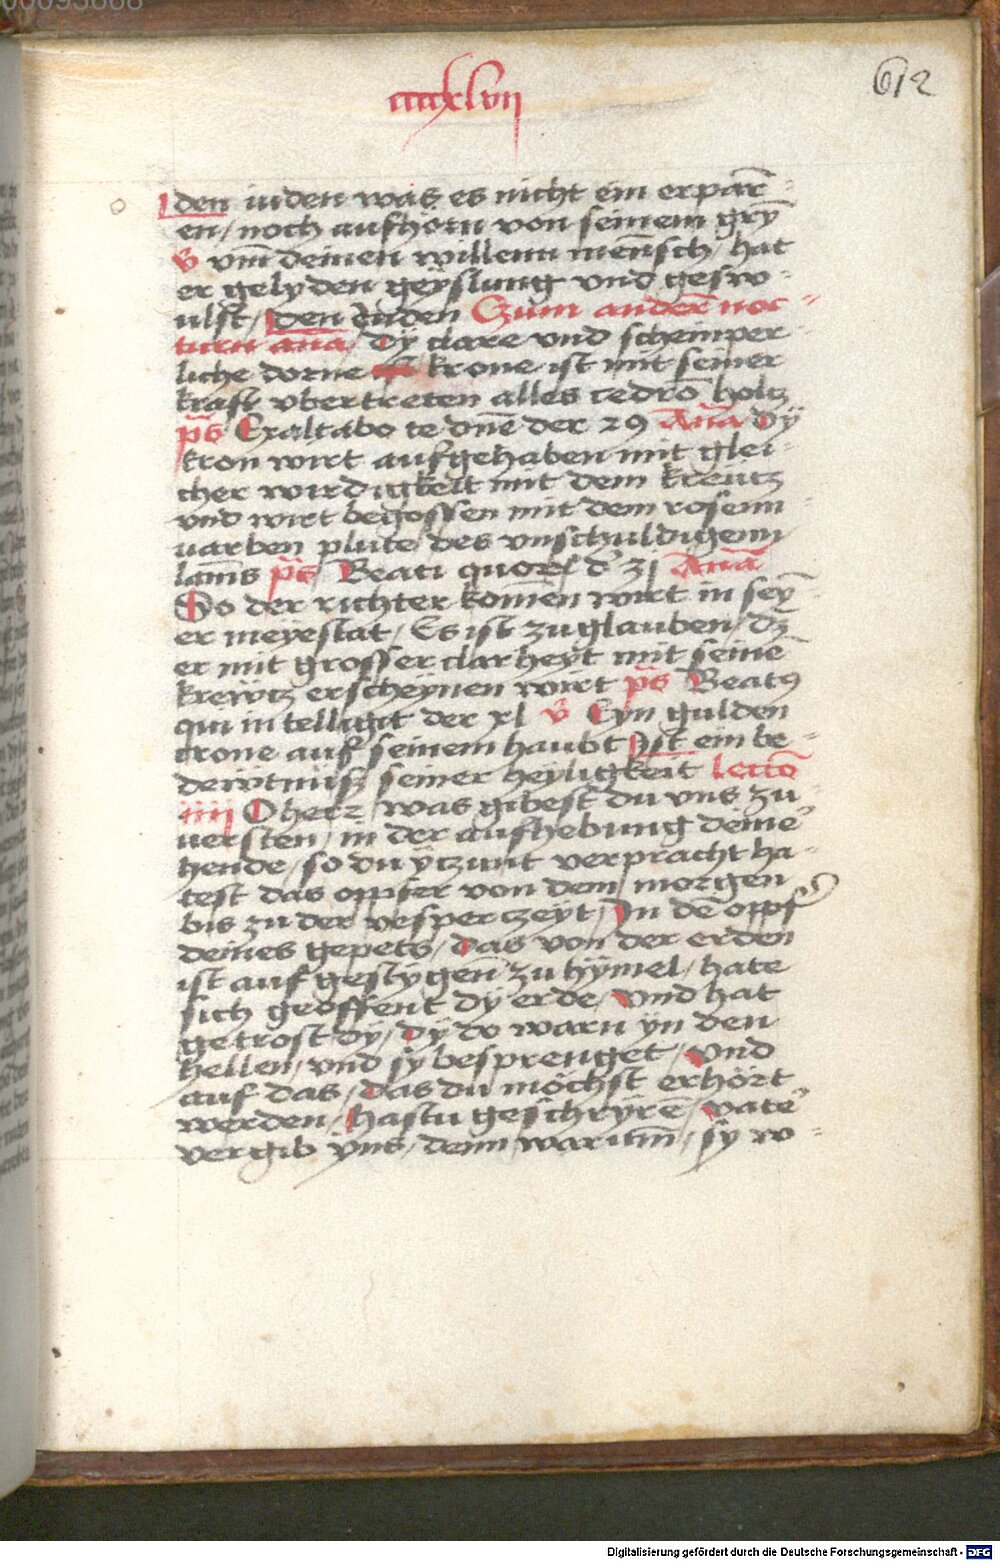 00095668
ccccxlvii
612
den iuden was es nicht ein erpar̄-
en / noch aufhörn von seinem grȳ
℣ vm̄ deinen willenn mensch / hat
er gelyden geyslung vnd geswo-
ulst / den iuden Zum andern̄ noc-
turn an̄a / Dÿ clare vnd scheinper-
liche dorne krone ist mit seiner
kraft vbertreten alles cedrō holtz
p̄s Exaltabo te dn̄e der 29 An̄a Dÿ
kron wirt aufgehaben mit glei-
cher wirdigkeit mit dem kreütz
vnd wirt begossen mit dem rosenn
uarben plute des vnschuldigenn
lam̄s p̄s Beati quorū d' 31 An̄a
So der richter komen wirt in seȳ-
er meyestat / Es ist zuglauben / dz
er mit grosser clarheyt mit seinē
krewtz erscheynen wirt p̄s Beatus
qui intelligit der xl ℣ Eyn gulden
crone auf seinem haubt Ist ein be-
dewtnuß seiner heyligkeit lecciō
iiij O herr / was gibest du vns zu
uersten / in der aufhebung deine
hende / so du ytzunt verpracht ha-
test das oppfer von dem morgen
bis zu der vesperczeyt / In dē oppf'
deines gepets / Das von der erden
ist auf gestygen zu hymel / hate
sich geöffent dy erde / Vnd hat
getrost dy / dy do warn yn den
hellen / vnd sy besprenget / Vnd
auf das / das du möchst erhört
werden / Hastu geschryrē / vate'
vergib yns / denn warumm / sy w-